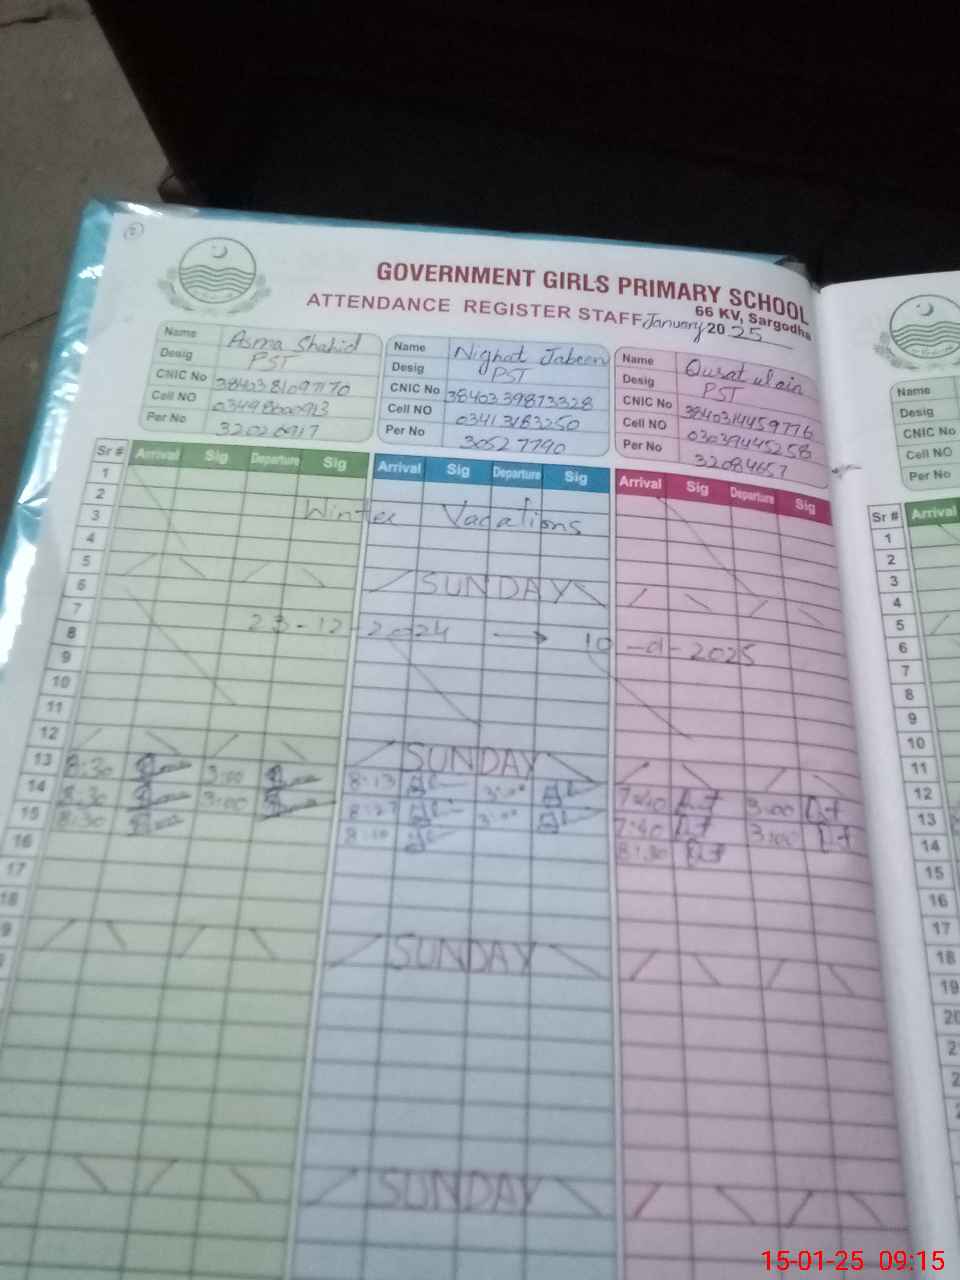 GOVERNMENT GIRLS PRIMARY SCHOOL
66 KV, Sargodha
ATTENDANCE REGISTER STAFF January 2025
Name Asma Shahid
Desig PST
CNIC No
Cell NO
Per No 32020917
Name Nighat Jabeen
Desig PST
CNIC No 3840339873328
Cell NO 03413183250
Per No 30527790
Name Qurat ul ain
Desig PST
CNIC No 3840314459776
Cell NO 03039445258
Per No 32084657
Name
Desig
CNIC No
Cell NO
Per No
Sr # Arrival Sig Departure Sig Arrival Sig Departure Sig Arrival Sig Departure Sig
Sr # Arrival
1
2
3 Winter Vacations
4
5 SUNDAY
6
7
8 23-12-2024 → 10-01-2025
9
10
11
12 SUNDAY
13 8:30 3:00 8:13 3:00 7:40 3:00
14 8:30 3:00 8:27 3:00 7:40 3:00
15 8:30 8:10 8:30
16
17
18
9 SUNDAY
SUNDAY
1
2
3
4
5
6
7
8
9
10
11
12
13
14
15
16
17
18
19
15-01-25 09:15